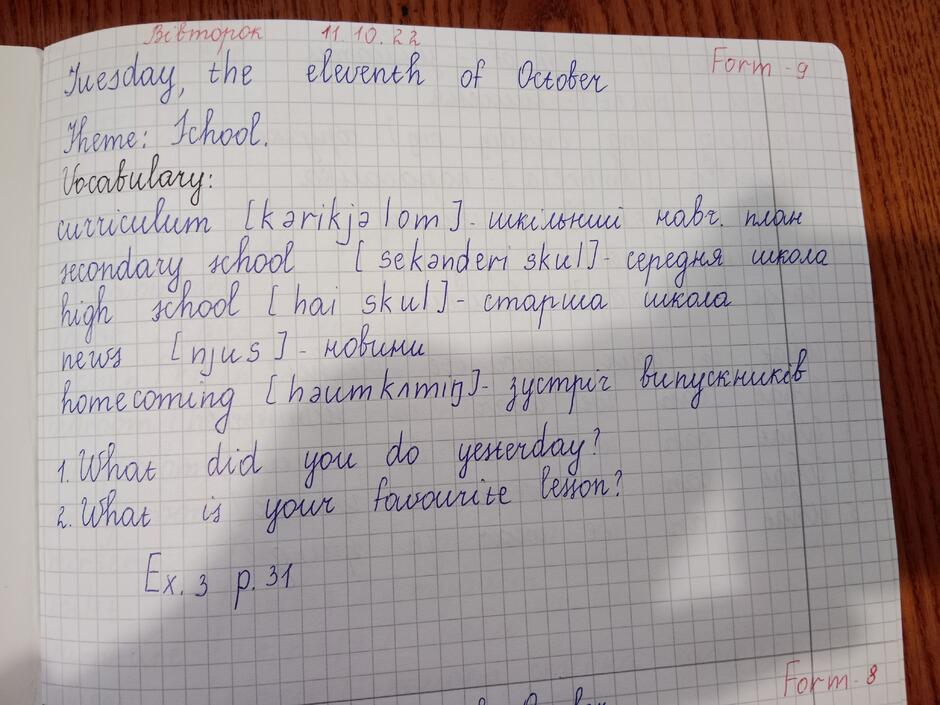 Вівторок 11.10.22
Form - 9
Tuesday, the eleventh of October
Theme: School.
Vocabulary:
curriculum [kərikjəlom] - шкільний навч. план
secondary school [sekənderi skul] - середня школа
high school [hai skul] - старша школа
news [njus] - новини
homecoming [həumkʌmiŋ] - зустріч випускників
1. What did you do yesterday?
2. What is your favourite lesson?
Ex. 3 p. 31
Form - 8